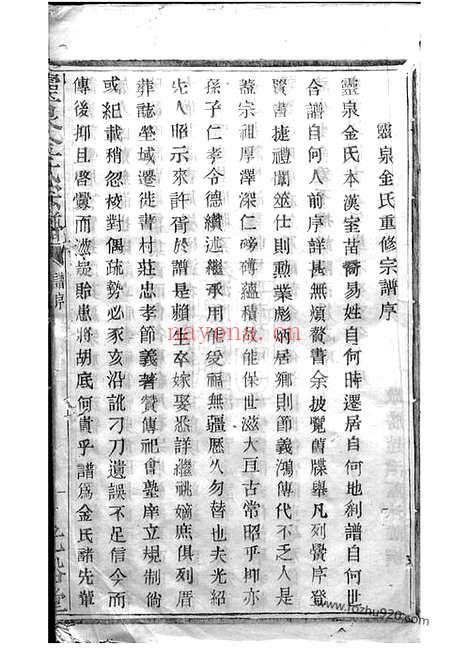 靈泉金氏重修宗譜序
靈泉金氏本漢室苗裔易姓自何時遷居自何地創譜自何世
合譜自何人前序詳甚無煩贅書余披覽舊牒舉凡列黌序登
賢書捷禮闈筮仕則勳業彪炳居鄉則節義鴻傳代不乏人是
蓋宗祖厚澤深仁磅礡蘊積能保世滋大亘古常昭乎抑亦
孫子仁孝令德纘述繼承用能受福無疆歷久勿替也夫光紹
先人昭示來許胥於譜是賴生卒嫁娶悉詳繼祧嫡庶俱列厝
葬誌塋域遷徙書村莊忠孝節義著贊傳祀會塾庠立規制倘
或紀載稍忽校對偶疏勢必豕亥沿訛刁刀遺誤不足信今而
傳後抑且啓釁而滋
貽患將胡底何貴乎譜爲金氏諸先輩
譜序
一
nayena.com
www.fozhu920.com